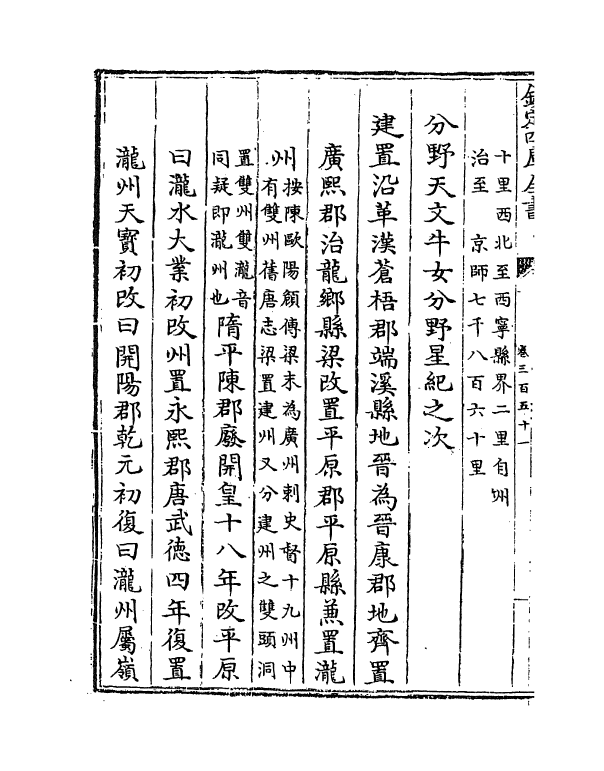 欽定四庫全書
卷三百五十一
十里西北至西寧縣界二里自州
治至　京師七千八百六十里
分野天文牛女分野星紀之次
建置沿革漢蒼梧郡端溪縣地晉為晉康郡地齊置
廣熙郡治龍鄉縣梁改置平原郡平原縣兼置瀧
州按陳歐陽頠傳梁末為廣州刺史督十九州中
有雙州舊唐志梁置建州又分建州之雙頭洞
置雙州雙瀧音
同疑即瀧州也隋平陳郡廢開皇十八年改平原
曰瀧水大業初改州置永熙郡唐武德四年復置
瀧州天寶初改曰開陽郡乾元初復曰瀧州屬嶺